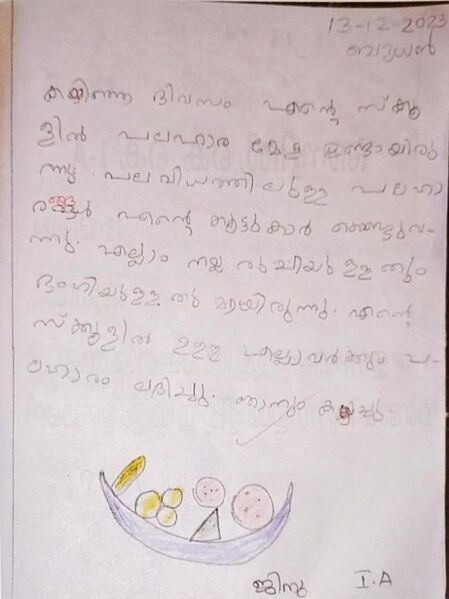 13-12-2023
ബുധൻ
കഴിഞ്ഞ ദിവസം എന്റെ സ്ക്കൂ
ളിൽ പലഹാര മേള ഉണ്ടായിരു
ന്നു. പലവിധത്തിലുള്ള പലഹാ
രങ്ങൾ എന്റെ കൂട്ടുകാർ കൊണ്ടുവ-
ന്നു. എല്ലാം നല്ല രുചിയുള്ളതും
ഭംഗിയുള്ളതുമായിരുന്നു. എന്റെ
സ്ക്കൂളിൽ ഉള്ള എല്ലാവർക്കും പ-
ലഹാരം ലഭിച്ചു. ഞാനും കഴിച്ചു
ജിനു I.A